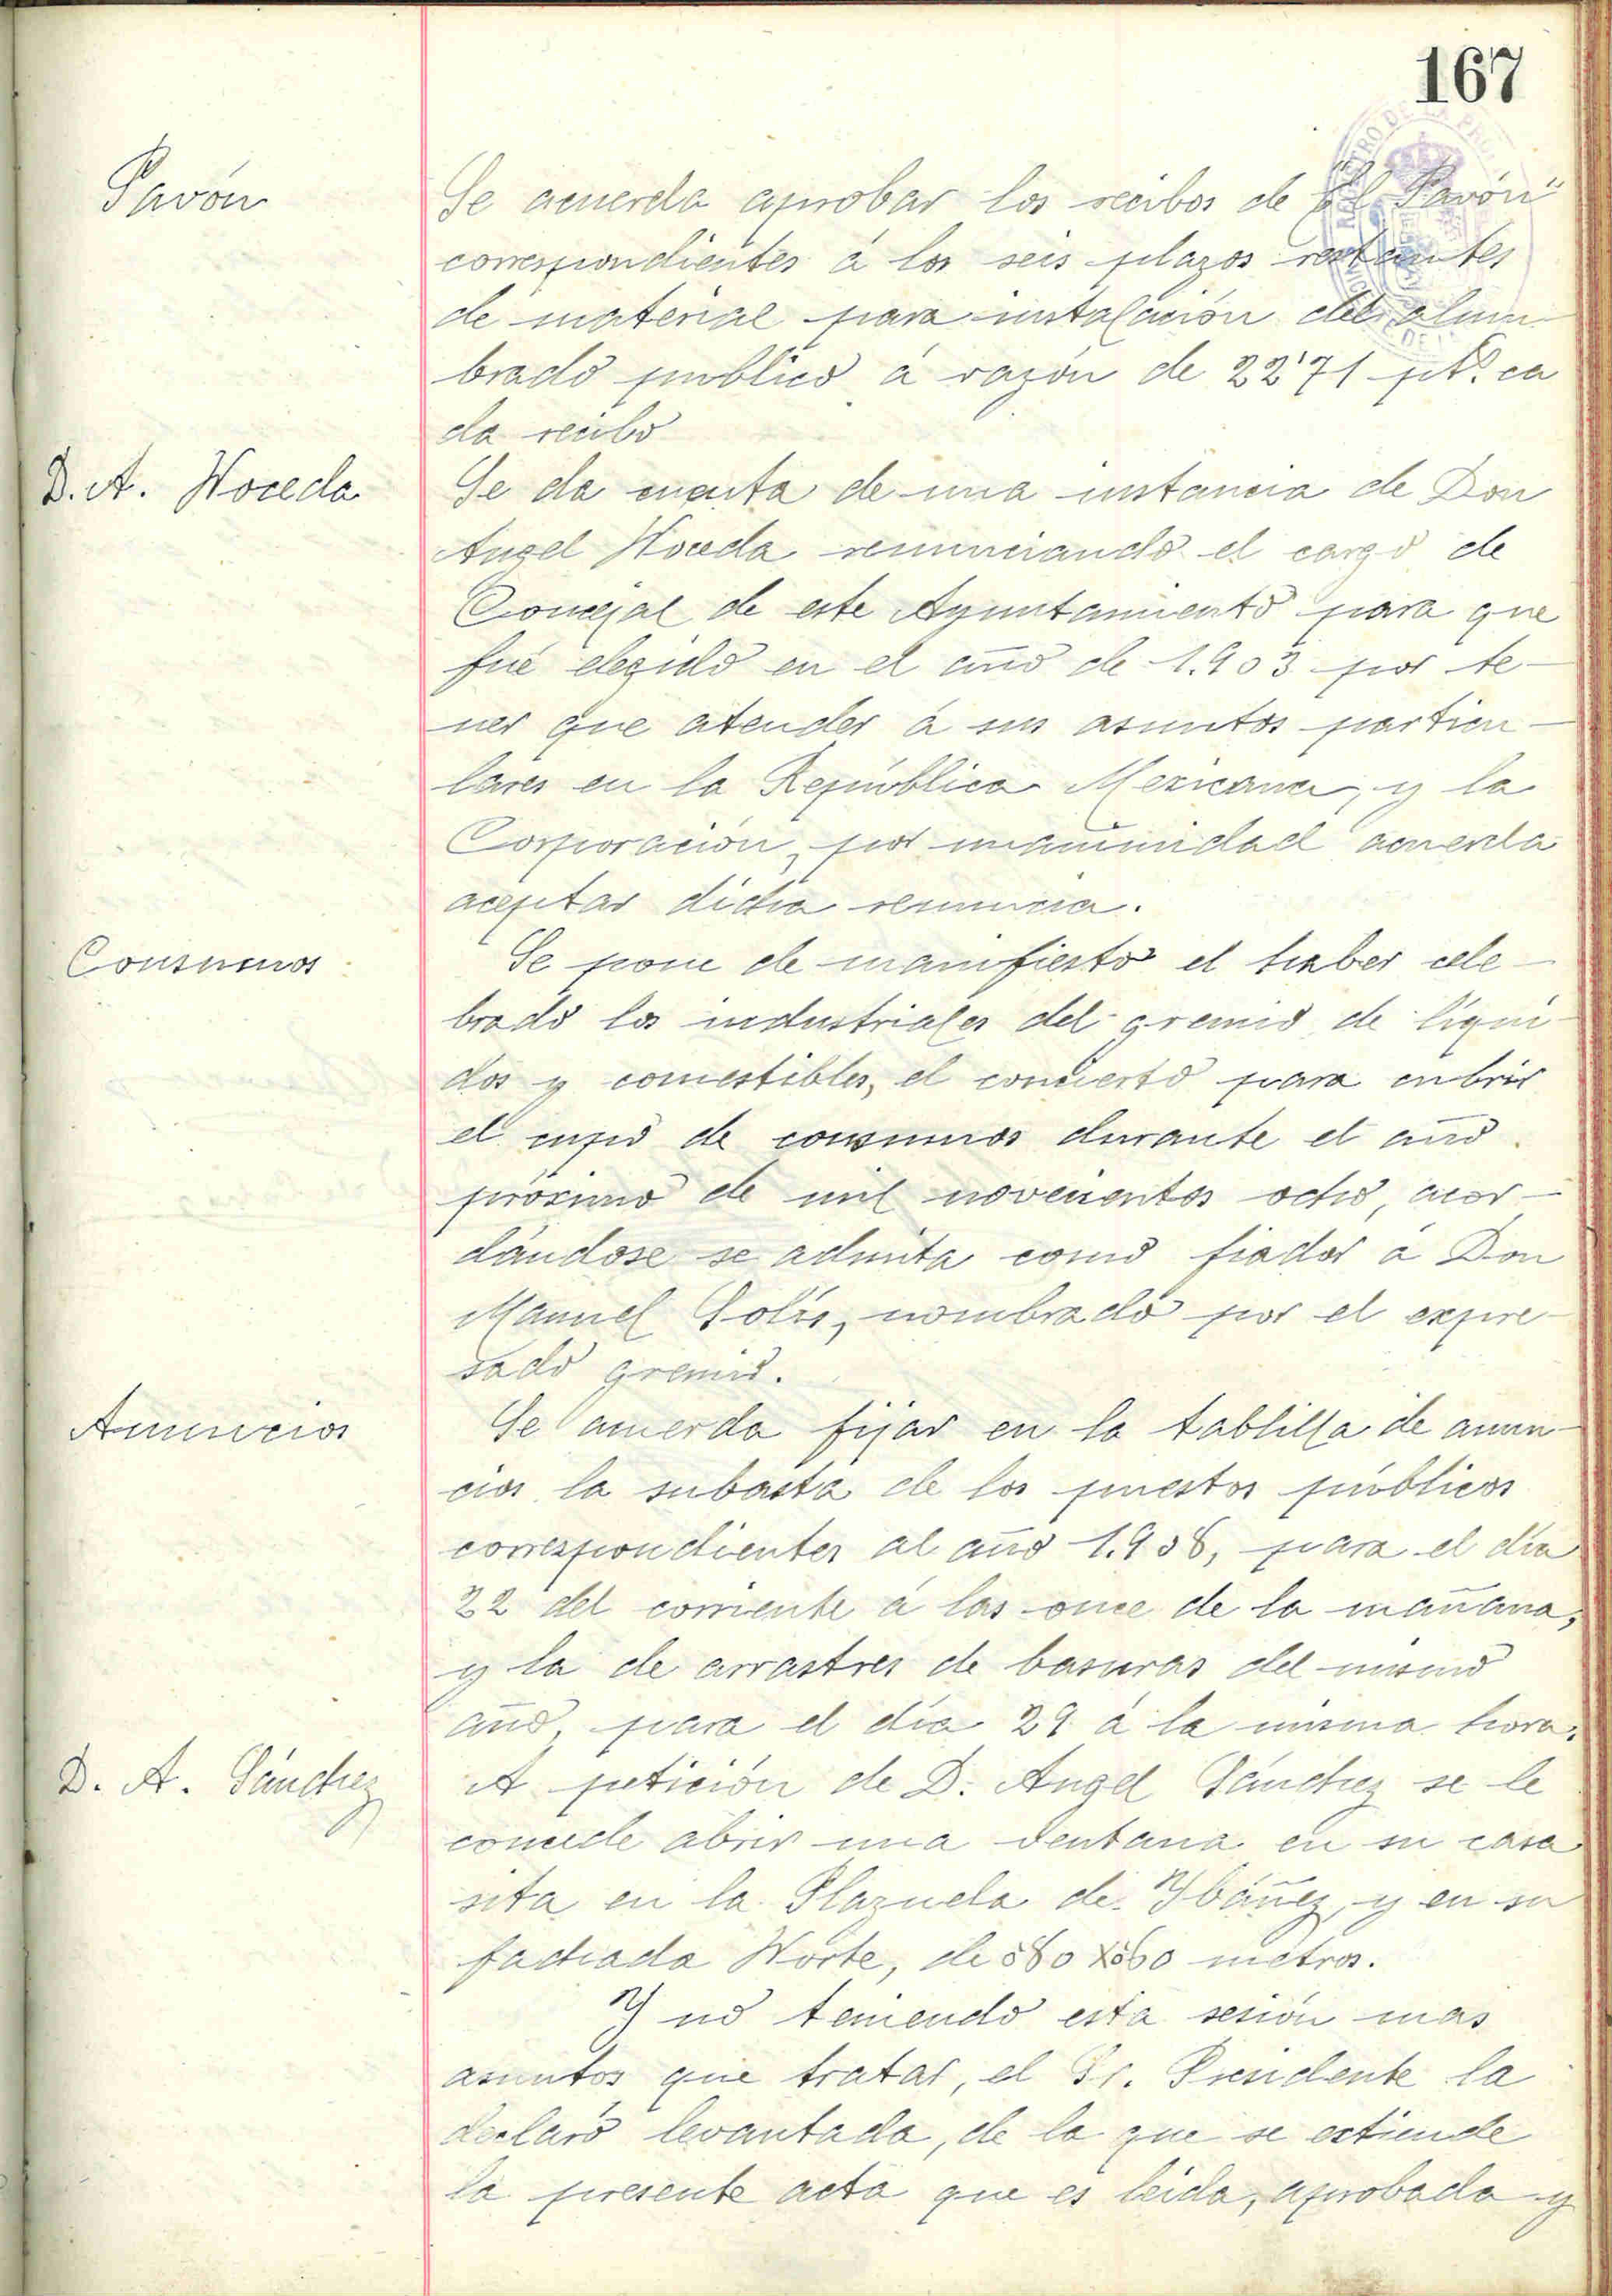 167
Pavón
Se acuerda aprobar los recibos de "El Pavón"
correspondientes á los seis plazos restantes
de material para instalación del alum-
brado publico á razón de 22'71 pts. ca
da recibo
D. A. Noceda
Se da cuenta de una instancia de Don
Angel Noceda renunciando el cargo de
Concejal de este Ayuntamiento para que
fué elegido en el año de 1.903 por te-
ner que atender á sus asuntos particu-
lares en la República Mexicana, y la
Corporación, por unanimidad acuerda
aceptar dicha renuncia.
Consumos
Se pone de manifiesto el haber cele-
brado los industriales del gremio de líqui-
dos y comestibles, el concierto para cubrir
el cupo de consumos durante el año
próximo de mil novecientos ocho, acor-
dándose se admita como fiador á Don
Manuel Solís, nombrado por el expre-
sado gremio.
Anuncios
Se acuerda fijar en la tablilla de anun-
cios la subasta de los puestos públicos
correspondientes al año 1.908, para el día
22 del corriente á las once de la mañana,
y la de arrastres de basuras del mismo
año, para el día 29 á la misma hora.
D. A. Sánchez
A petición de D. Angel Sánchez se le
concede abrir una ventana en su casa
sita en la Plazuela de Ybáñez, y en su
fachada Norte, de 0'80 x 0'60 metros.
Y no teniendo esta sesión mas
asuntos que tratar, el Sr. Presidente la
declaró levantada, de la que se extiende
la presente acta que es leida, aprobada y